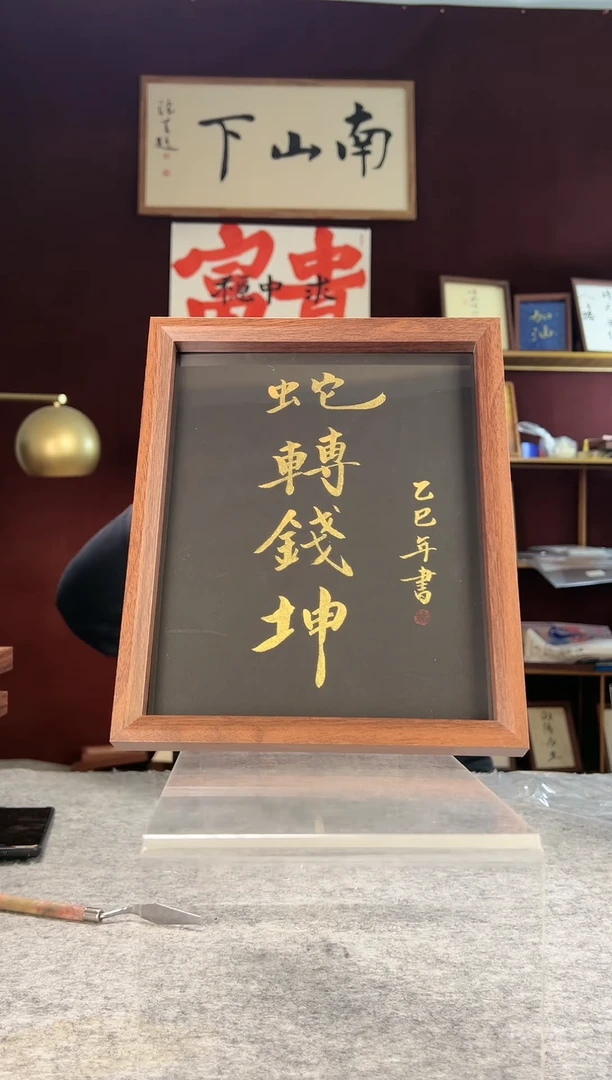 南山下
富貴
穩中求
加油
蛇轉錢坤
乙巳年書